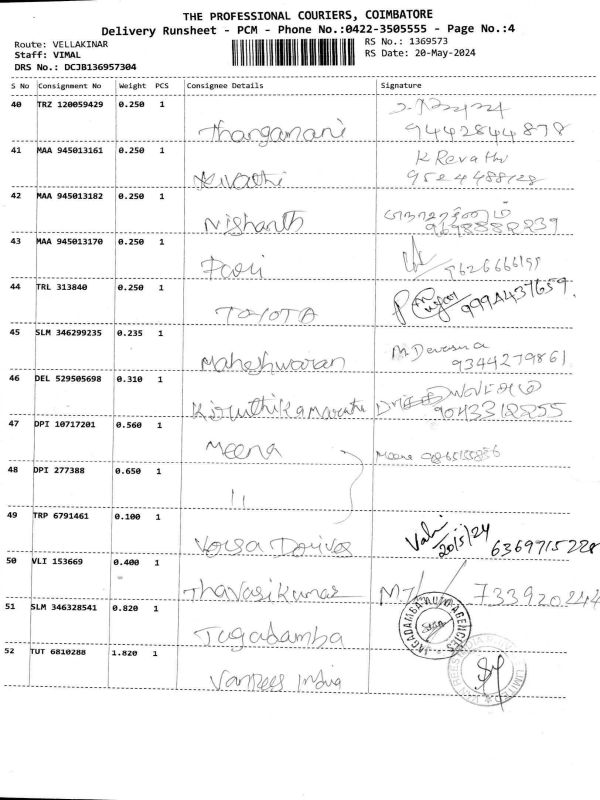 THE PROFESSIONAL COURIERS, COIMBATORE
Delivery Runsheet - PCM - Phone No.:0422-3505555 - Page No.:4
Route: VELLAKINAR
RS No.: 1369573
Staff: VIMAL
RS Date: 20-May-2024
DRS No.: DCJB136957304
S No Consignment No Weight PCS Consignee Details Signature
40 TRZ 120059429 0.250 1
Thangamani 9442844878
41 MAA 945013161 0.250 1 K Revathi
Revathi 9524488128
42 MAA 945013182 0.250 1
Nishanth 9698888239
43 MAA 945013170 0.250 1
9626666199
44 TRL 313840 0.250 1
TOYOTA 9994437659.
45 SLM 346299235 0.235 1 M Devasena
Maheshwaran 9344279861
46 DEL 529505698 0.310 1
9043318855
47 DPI 10717201 0.560 1
Meena Meena
48 DPI 277388 0.650 1
11
49 TRP 6791461 0.100 1
20/5/24 6369715228
50 VLI 153669 0.400 1
Thavasikumar 733920244
51 SLM 346328541 0.820 1 JAGADAMBA AUTO AGENCIES
Jagadamba
52 TUT 6810288 1.820 1
VanRees India LIMITED